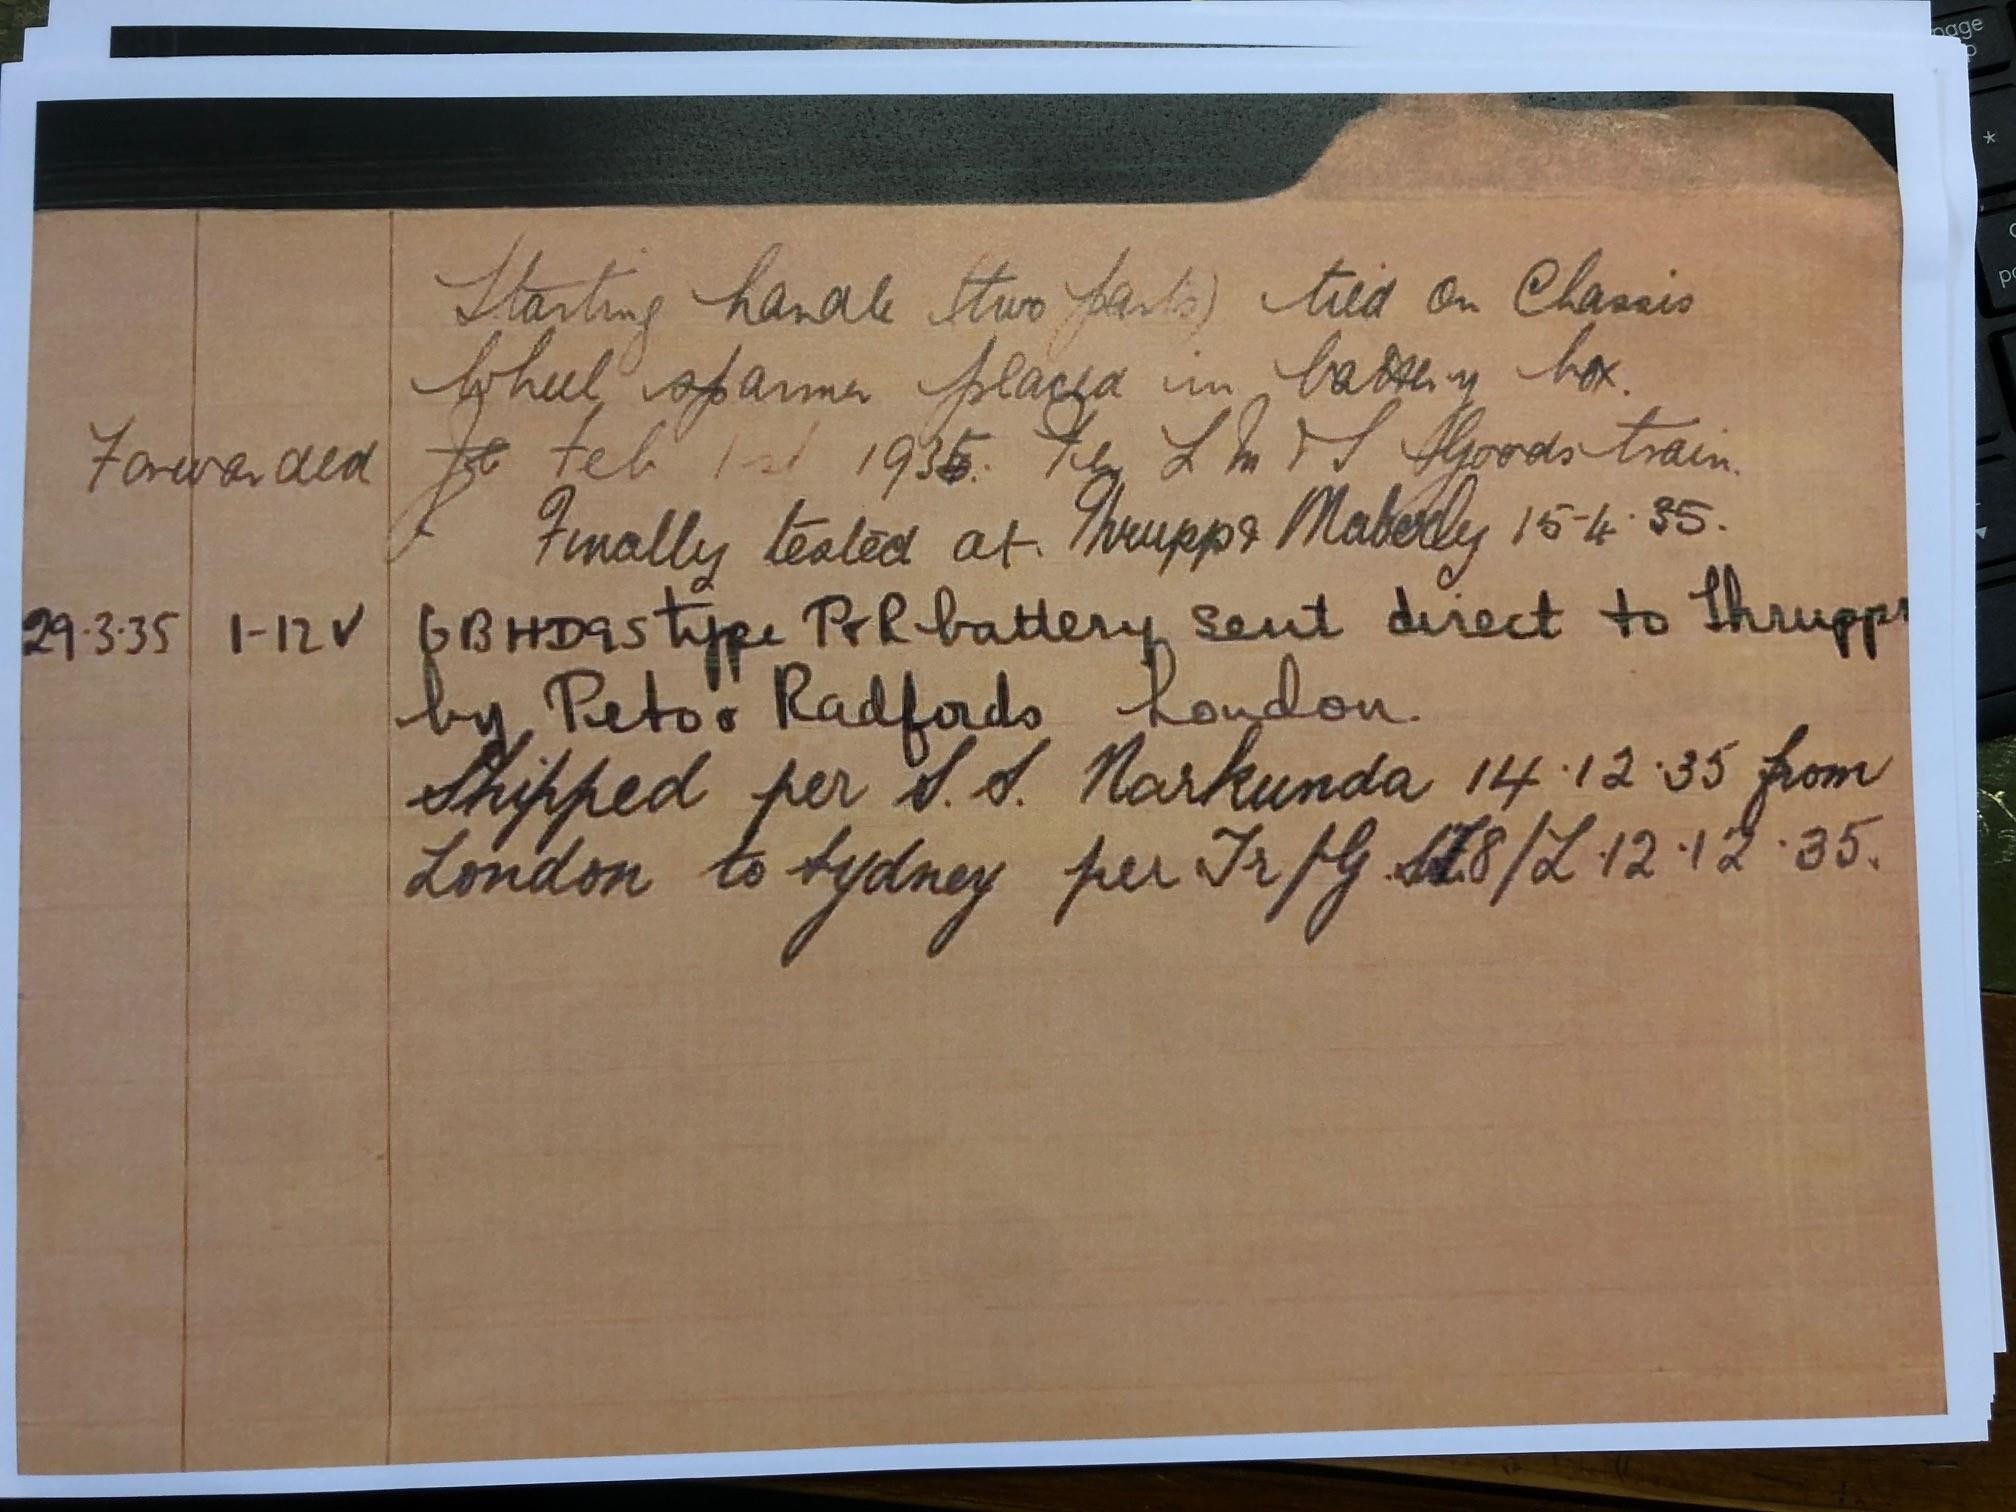 Starting handle (two parts) tied on Chassis
Wheel spanner placed in battery box.
Forwarded Feb 1st 1935. Per L M & S Goods train.
Finally tested at Thrupp & Maberly 15-4-35.
29.3.35 1-12V 6BHD95 type P&R battery sent direct to Thrupps
by Peto & Radfords London.
Shipped per S.S. Narkunda 14.12.35 from
London to Sydney per Tr/G 8/L 12.12.35.
page
*